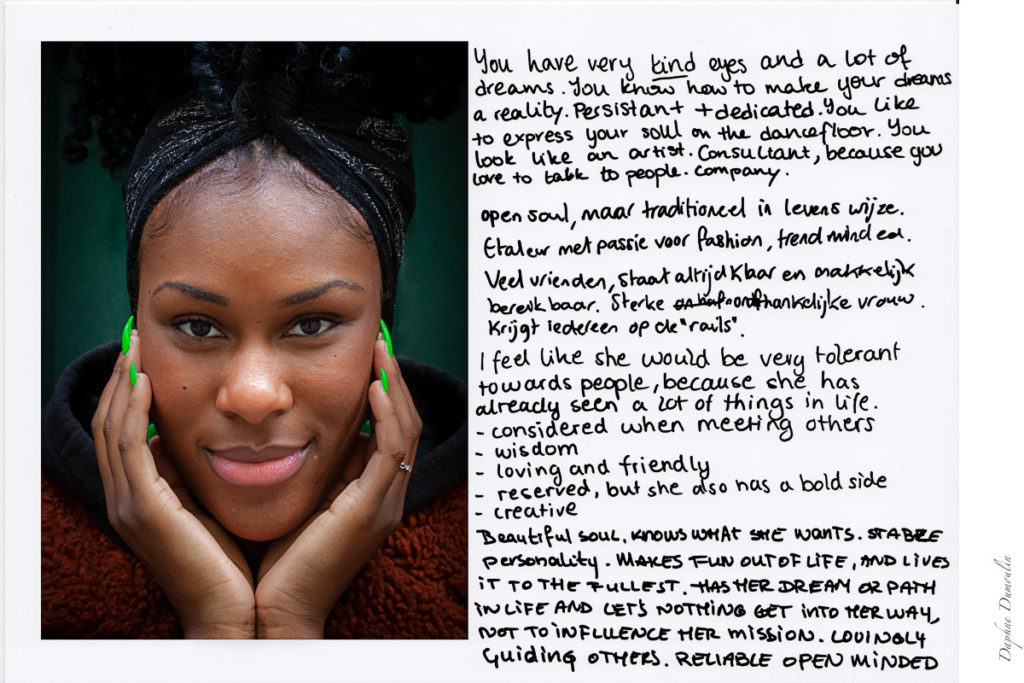 You have very kind eyes and a lot of
dreams. You know how to make your dreams
a reality. Persistant + dedicated. You like
to express your soul on the dancefloor. You
look like an artist. Consultant, because you
love to talk to people. Company.
open soul, maar traditioneel in levens wijze.
Etaleur met passie voor fashion, trend minded.
Veel vrienden, staat altijd klaar en makkelijk
bereikbaar. Sterke onafhankelijke vrouw.
Krijgt iedereen op de "rails".
I feel like she would be very tolerant
towards people, because she has
already seen a lot of things in life.
- considered when meeting others
- wisdom
- loving and friendly
- reserved, but she also has a bold side
- creative
Beautiful SOUL, KNOWS WHAT SHE WANTS. STABLE
personality. MAKES FUN OUT OF LIFE, AND LIVES
IT TO THE FULLEST. HAS HER DREAM OR PATH
IN LIFE AND LET'S NOTHING GET INTO HER WAY,
NOT TO INFLUENCE HER MISSION. LOVINGLY
Guiding OTHERS. RELIABLE OPEN MINDED
Daphne Dumoulin